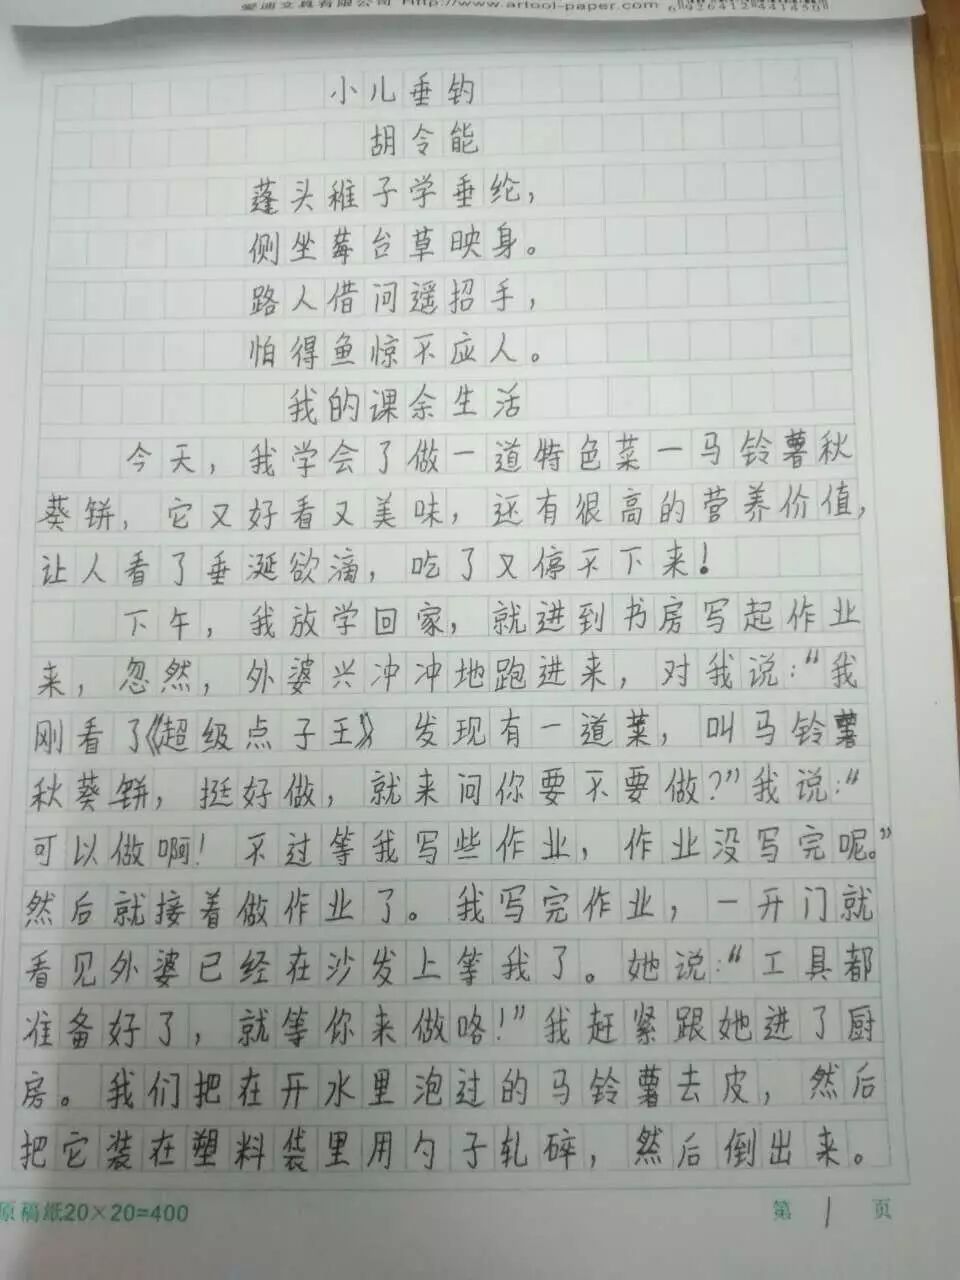 爱迪文具有限公司 Http://www.artool-paper.com
6 926412 441450
小儿垂钓
胡令能
蓬头稚子学垂纶，
侧坐莓台草映身。
路人借问遥招手，
怕得鱼惊不应人。
我的课余生活
今天，我学会了做一道特色菜一马铃薯秋
葵饼，它又好看又美味，还有很高的营养价值，
让人看了垂涎欲滴，吃了又停不下来！
下午，我放学回家，就进到书房写起作业
来，忽然，外婆兴冲冲地跑进来，对我说：“我
刚看了《超级点子王》发现有一道菜，叫马铃薯
秋葵饼，挺好做，就来问你要不要做？”我说：“
可以做啊！不过等我写些作业，作业没写完呢。”
然后就接着做作业了。我写完作业，一开门就
看见外婆已经在沙发上等我了。她说：“工具都
准备好了，就等你来做咯！”我赶紧跟她进了厨
房。我们把在开水里泡过的马铃薯去皮，然后
把它装在塑料袋里用勺子轧碎，然后倒出来。
原稿纸20×20=400
第 1 页